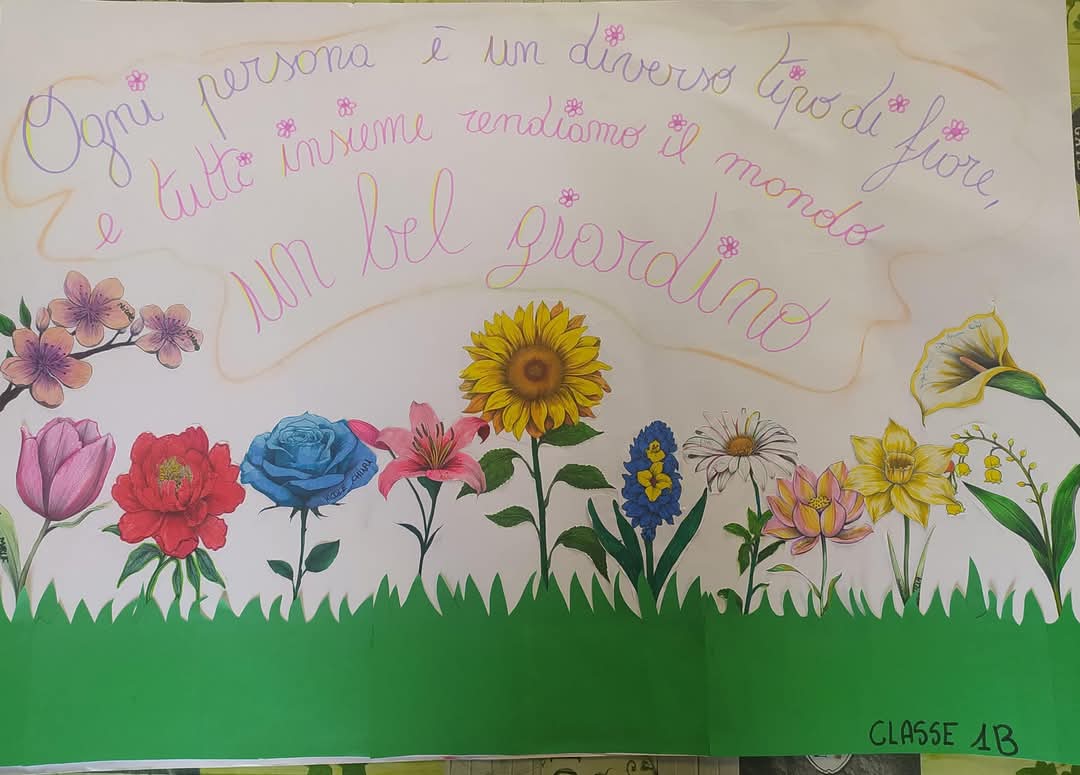 Ogni persona è un diverso tipo di fiore,
e tutti insieme rendiamo il mondo
un bel giardino
CLASSE 1B